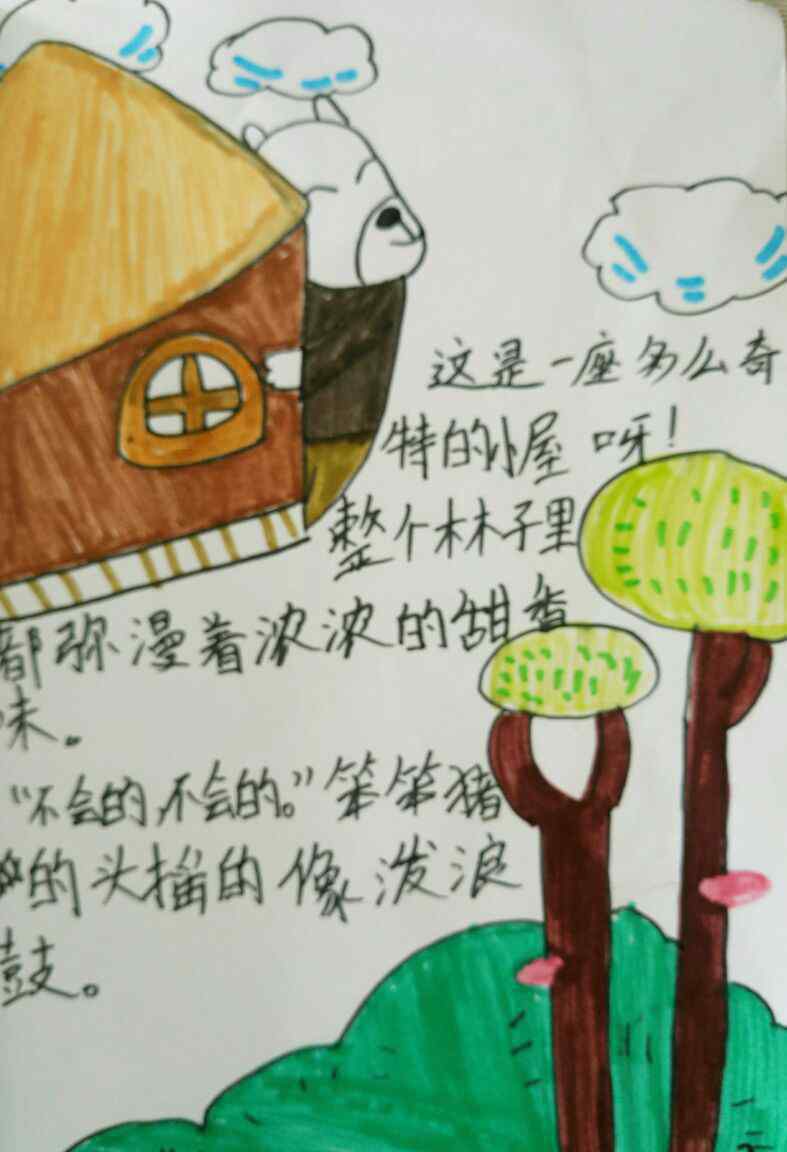 这是一座多么奇
特的小屋呀!
整个林子里
都弥漫着浓浓的甜香
味。
“不会的,不会的。”笨笨猪
的头摇的像泼浪
鼓。